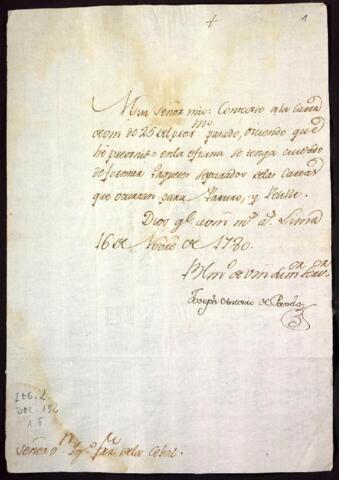 + 1
Muy Señor mio: Contexto a la Carta
de vm de 26 del prox.mo pasado, diciendo que
he prevenido en la oficina se tenga cuidado
de formar Paquetes separados de las Cartas
que ocurran para Paruro, y
Dios gue. a vm ms. as. Lima
16 de Novre. de 1780.
Joseph Antonio de Pando
LEG. 2
DOC. 152
1 F
Señor Dn. de la Cabal.